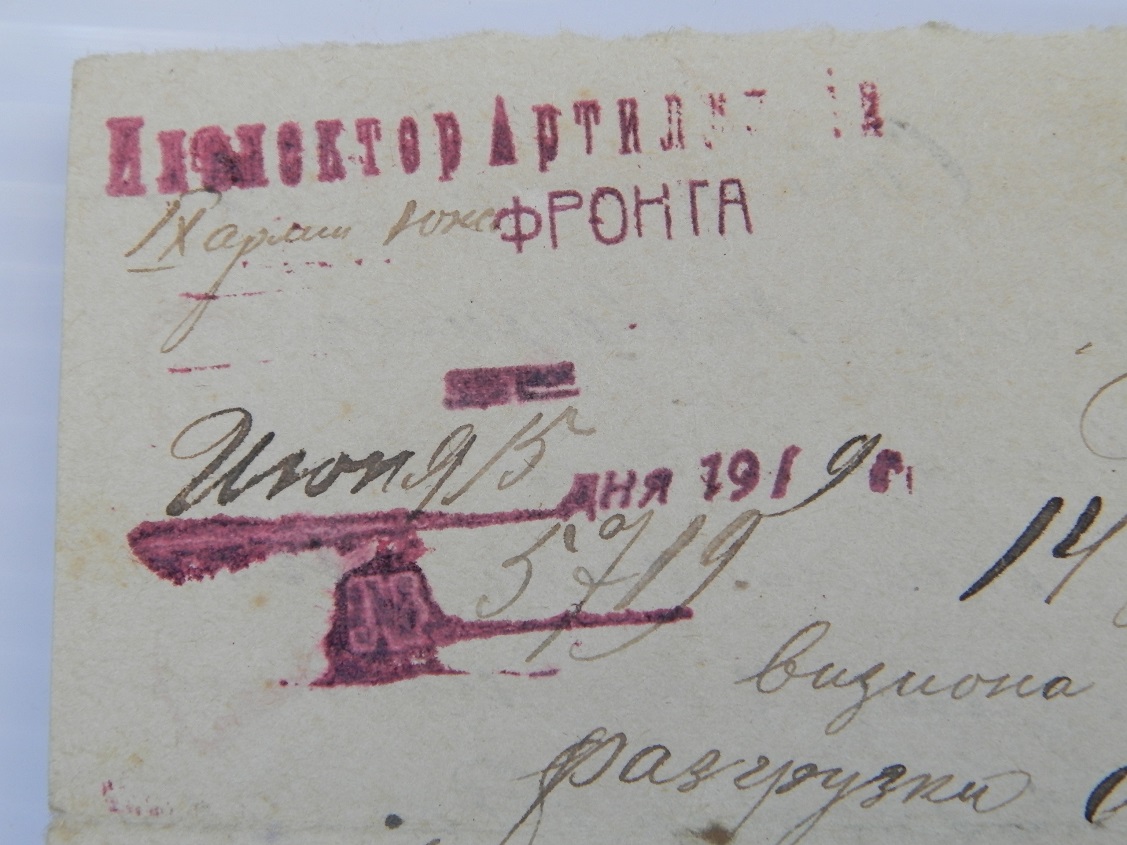 Инспектор Артиллерии
IX армии Южн ФРОНТА
Июня 15 дня 1919 г.
№ 5719.
14
визиона
разгрузки